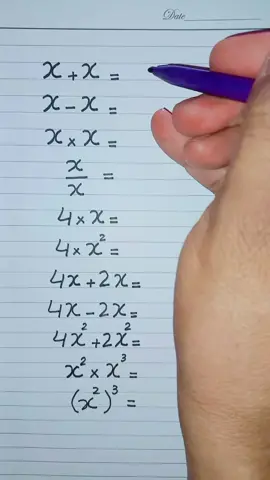 Date
x + x =
x - x =
x × x =
x/x =
4 × x =
4 × x² =
4x + 2x =
4x - 2x =
4x² + 2x² =
x² × x³ =
(x²)³ =